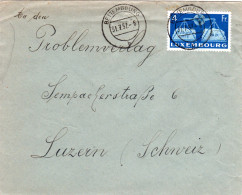 An den
BETTEMBOURG
31.7.51.-9
4 Fr
LUXEMBOURG
Problemverlag
Sempacherstraße 6
Luzern (Schweiz)